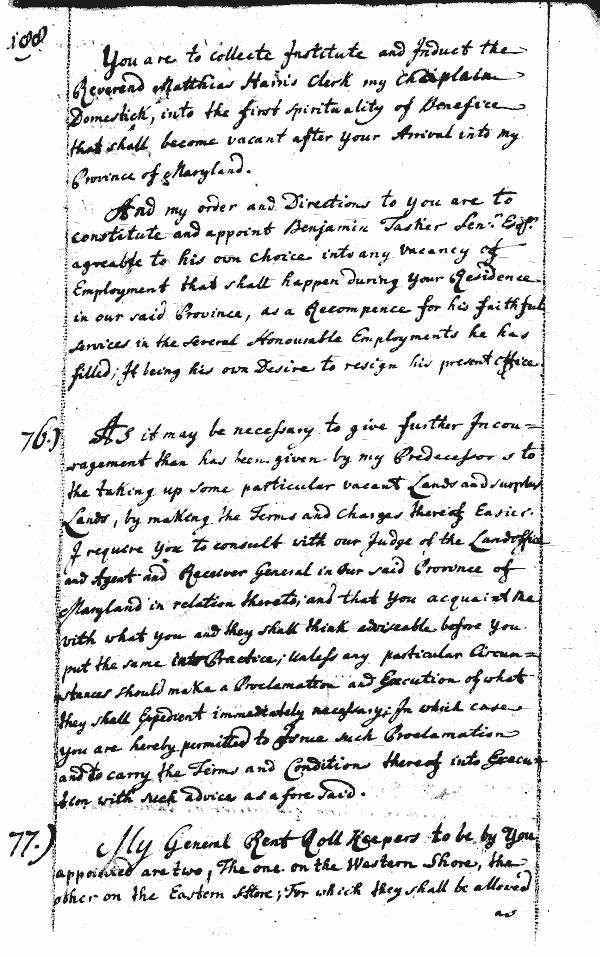 188
You are to collecte Institute and Induct the
Reverend Matthias Harris Clerk my Chaiplain
Domestick, into the first spirituality of Benefice
that shall become vacant after your Arrival into my
Province of Maryland.
And my order and Directions to you are to
constitute and appoint Benjamin Tasker Senr. Esqr.
agreeable to his own choice into any vacancy of
Employment that shall happen during your Residence
in our said Province, as a Recompence for his faithfull
services in the several Honourable Employments he has
filled; It being his own Desire to resign his present office.
76.) As it may be necessary to give further Incou=
ragement than has been given by my Predecessors to
the taking up some particular vacant Lands and surplus
Lands, by making the Terms and Charges thereof Easier.
I require you to consult with our Judge of the Landoffice
and Agent and Receiver General in our said Province of
Maryland in relation thereto; and that you acquaint me
with what you and they shall think adviseable before you
put the same into Practice; Unless any particular Circum=
stances should make a Proclamation and Execution of what
they shall Expedient immediately necessary; In which case
you are hereby permitted to Issue such Proclamation
and to carry the Terms and Conditions thereof into Execu=
tion with such advice as afore said.
77.) My General Rent Roll Keepers to be by You
appointed are two, The one on the Western Shore, the
other on the Eastern Shore; For which they shall be allowed
as